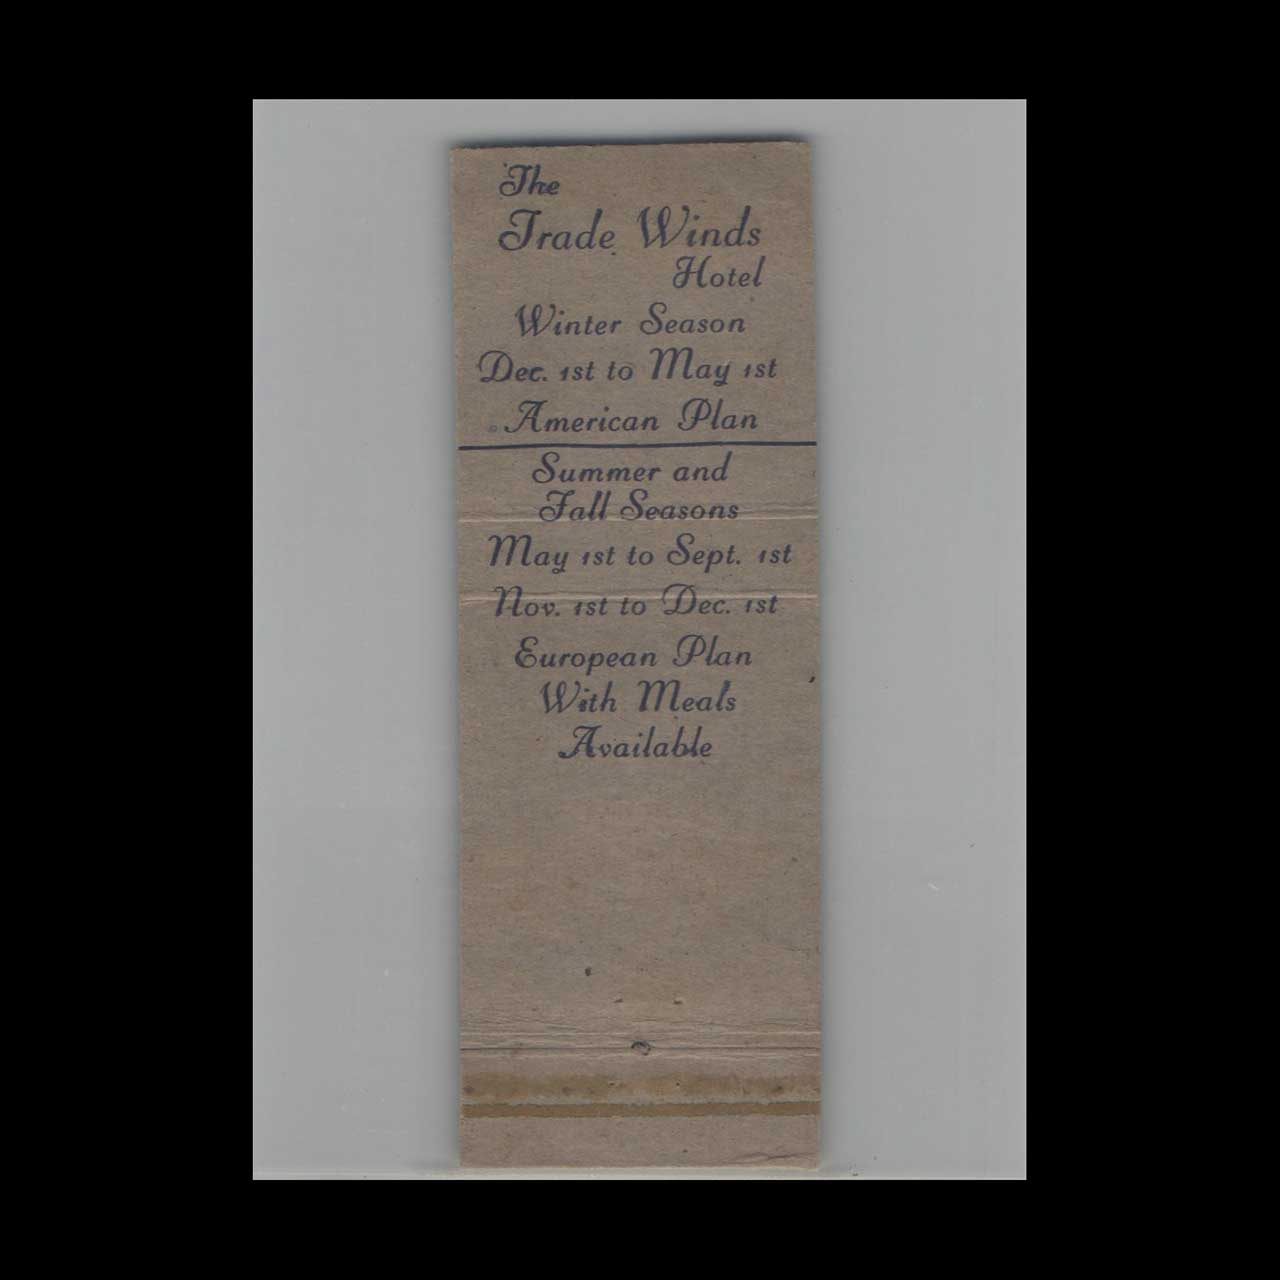 The
Trade Winds
Hotel
Winter Season
Dec. 1st to May 1st
American Plan
Summer and
Fall Seasons
May 1st to Sept. 1st
Nov. 1st to Dec. 1st
European Plan
With Meals
Available